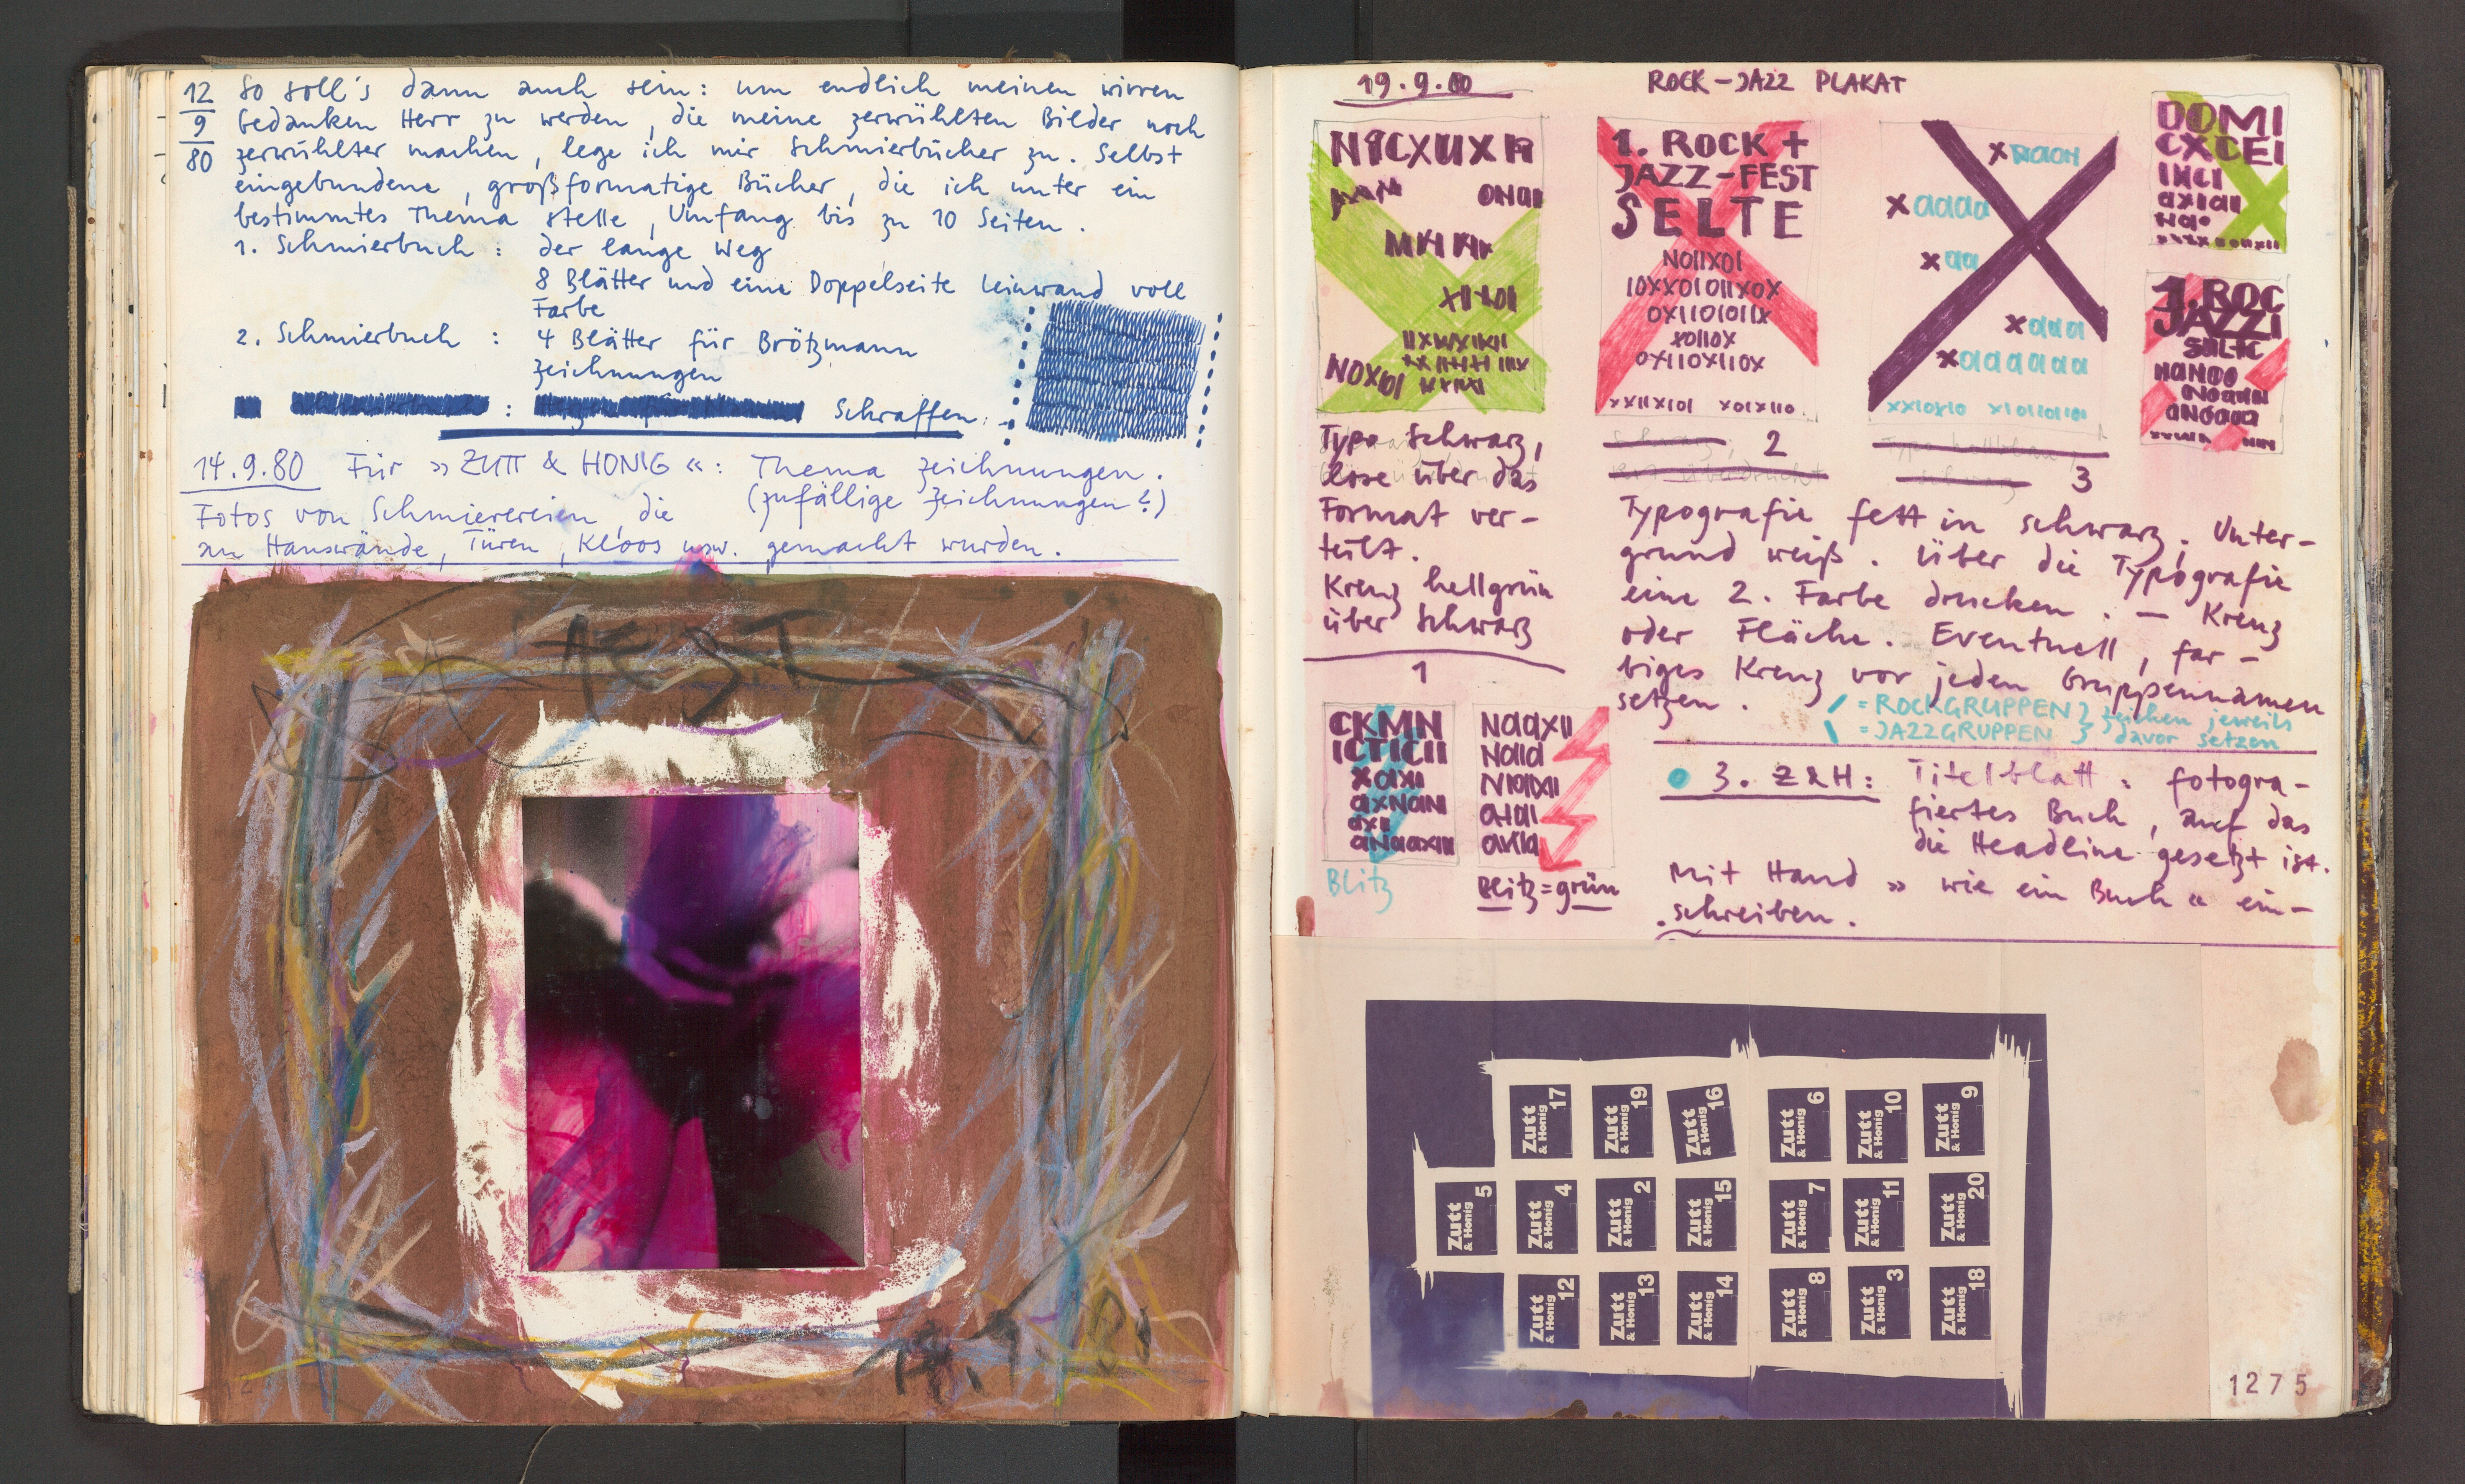 12
9
80
So soll's dann auch sein: um endlich meinen wirren
Gedanken Herr zu werden, die meine zerwühlten Bilder noch
zerwühlter machen, lege ich mir Schmierbücher zu. Selbst
eingebundene, großformatige Bücher, die ich unter ein
bestimmtes Thema stelle, Umfang bis zu 10 Seiten.
1. Schmierbuch: der lange Weg
8 Blätter und eine Doppelseite Leinwand voll
Farbe
2. Schmierbuch: 4 Blätter für Brötzmann
Zeichnungen
: Schraffen.
14.9.80 Für »ZUTT & HONIG«: Thema Zeichnungen.
(zufällige Zeichnungen?)
Fotos von Schmierereien, die
an Hauswände, Türen, Kloos usw. gemacht wurden.
19.9.80
ROCK-JAZZ PLAKAT
1. ROCK +
JAZZ-FEST
SELTE
1. ROC
JAZZ
Typo schwarz,
lose über das
Format ver-
teilt.
Kreuz hellgrün
über schwarz
1
2
3
Typografie fett in schwarz. Unter-
grund weiß. Über die Typografie
eine 2. Farbe drucken. – Kreuz
oder Fläche. Eventuell, far-
biges Kreuz vor jeden Gruppennamen
setzen.
/ = ROCKGRUPPEN } Zeichen jeweils
\ = JAZZGRUPPEN } davor setzen
CKMN
ICTICII
Blitz
Blitz=grün
3. Z&H: Titelblatt: fotogra-
fiertes Buch, auf das
die Headline gesetzt ist.
Mit Hand »wie ein Buch« ein-
schreiben.
Zutt & Honig 17
Zutt & Honig 19
Zutt & Honig 16
Zutt & Honig 6
Zutt & Honig 10
Zutt & Honig 9
Zutt & Honig 5
Zutt & Honig 4
Zutt & Honig 2
Zutt & Honig 15
Zutt & Honig 7
Zutt & Honig 11
Zutt & Honig 20
Zutt & Honig 12
Zutt & Honig 13
Zutt & Honig 14
Zutt & Honig 8
Zutt & Honig 3
Zutt & Honig 18
1275